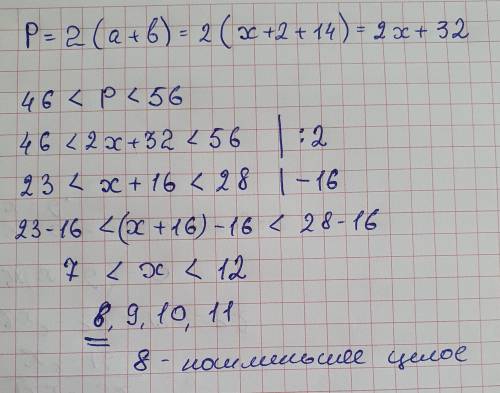 P = 2(a+b) = 2(x+2+14) = 2x+32
46 < P < 56
46 < 2x+32 < 56 | :2
23 < x+16 < 28 | -16
23-16 < (x+16)-16 < 28-16
7 < x < 12
8, 9, 10, 11
8 - наименьшее целое